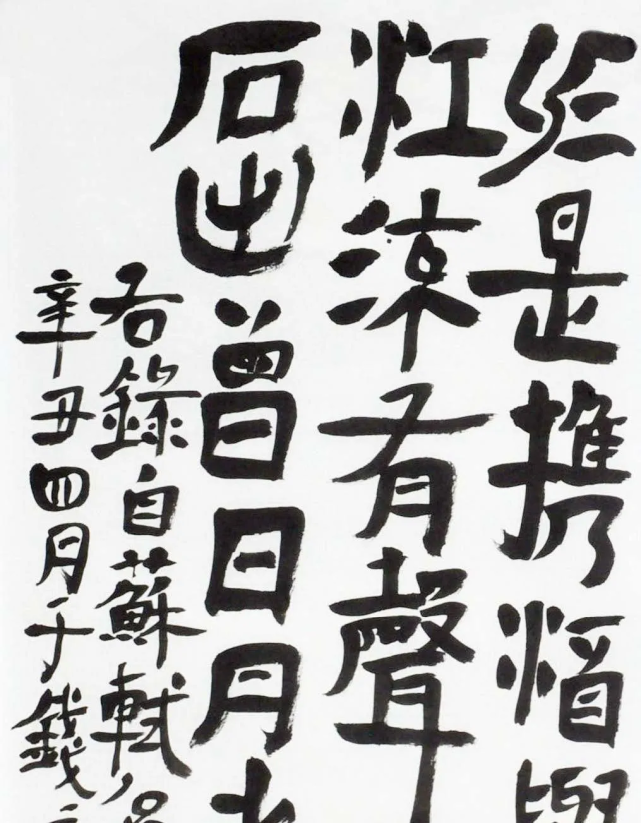 於是携酒與
江流有聲
石出曾日月
右錄自蘇軾
辛丑四月于錢